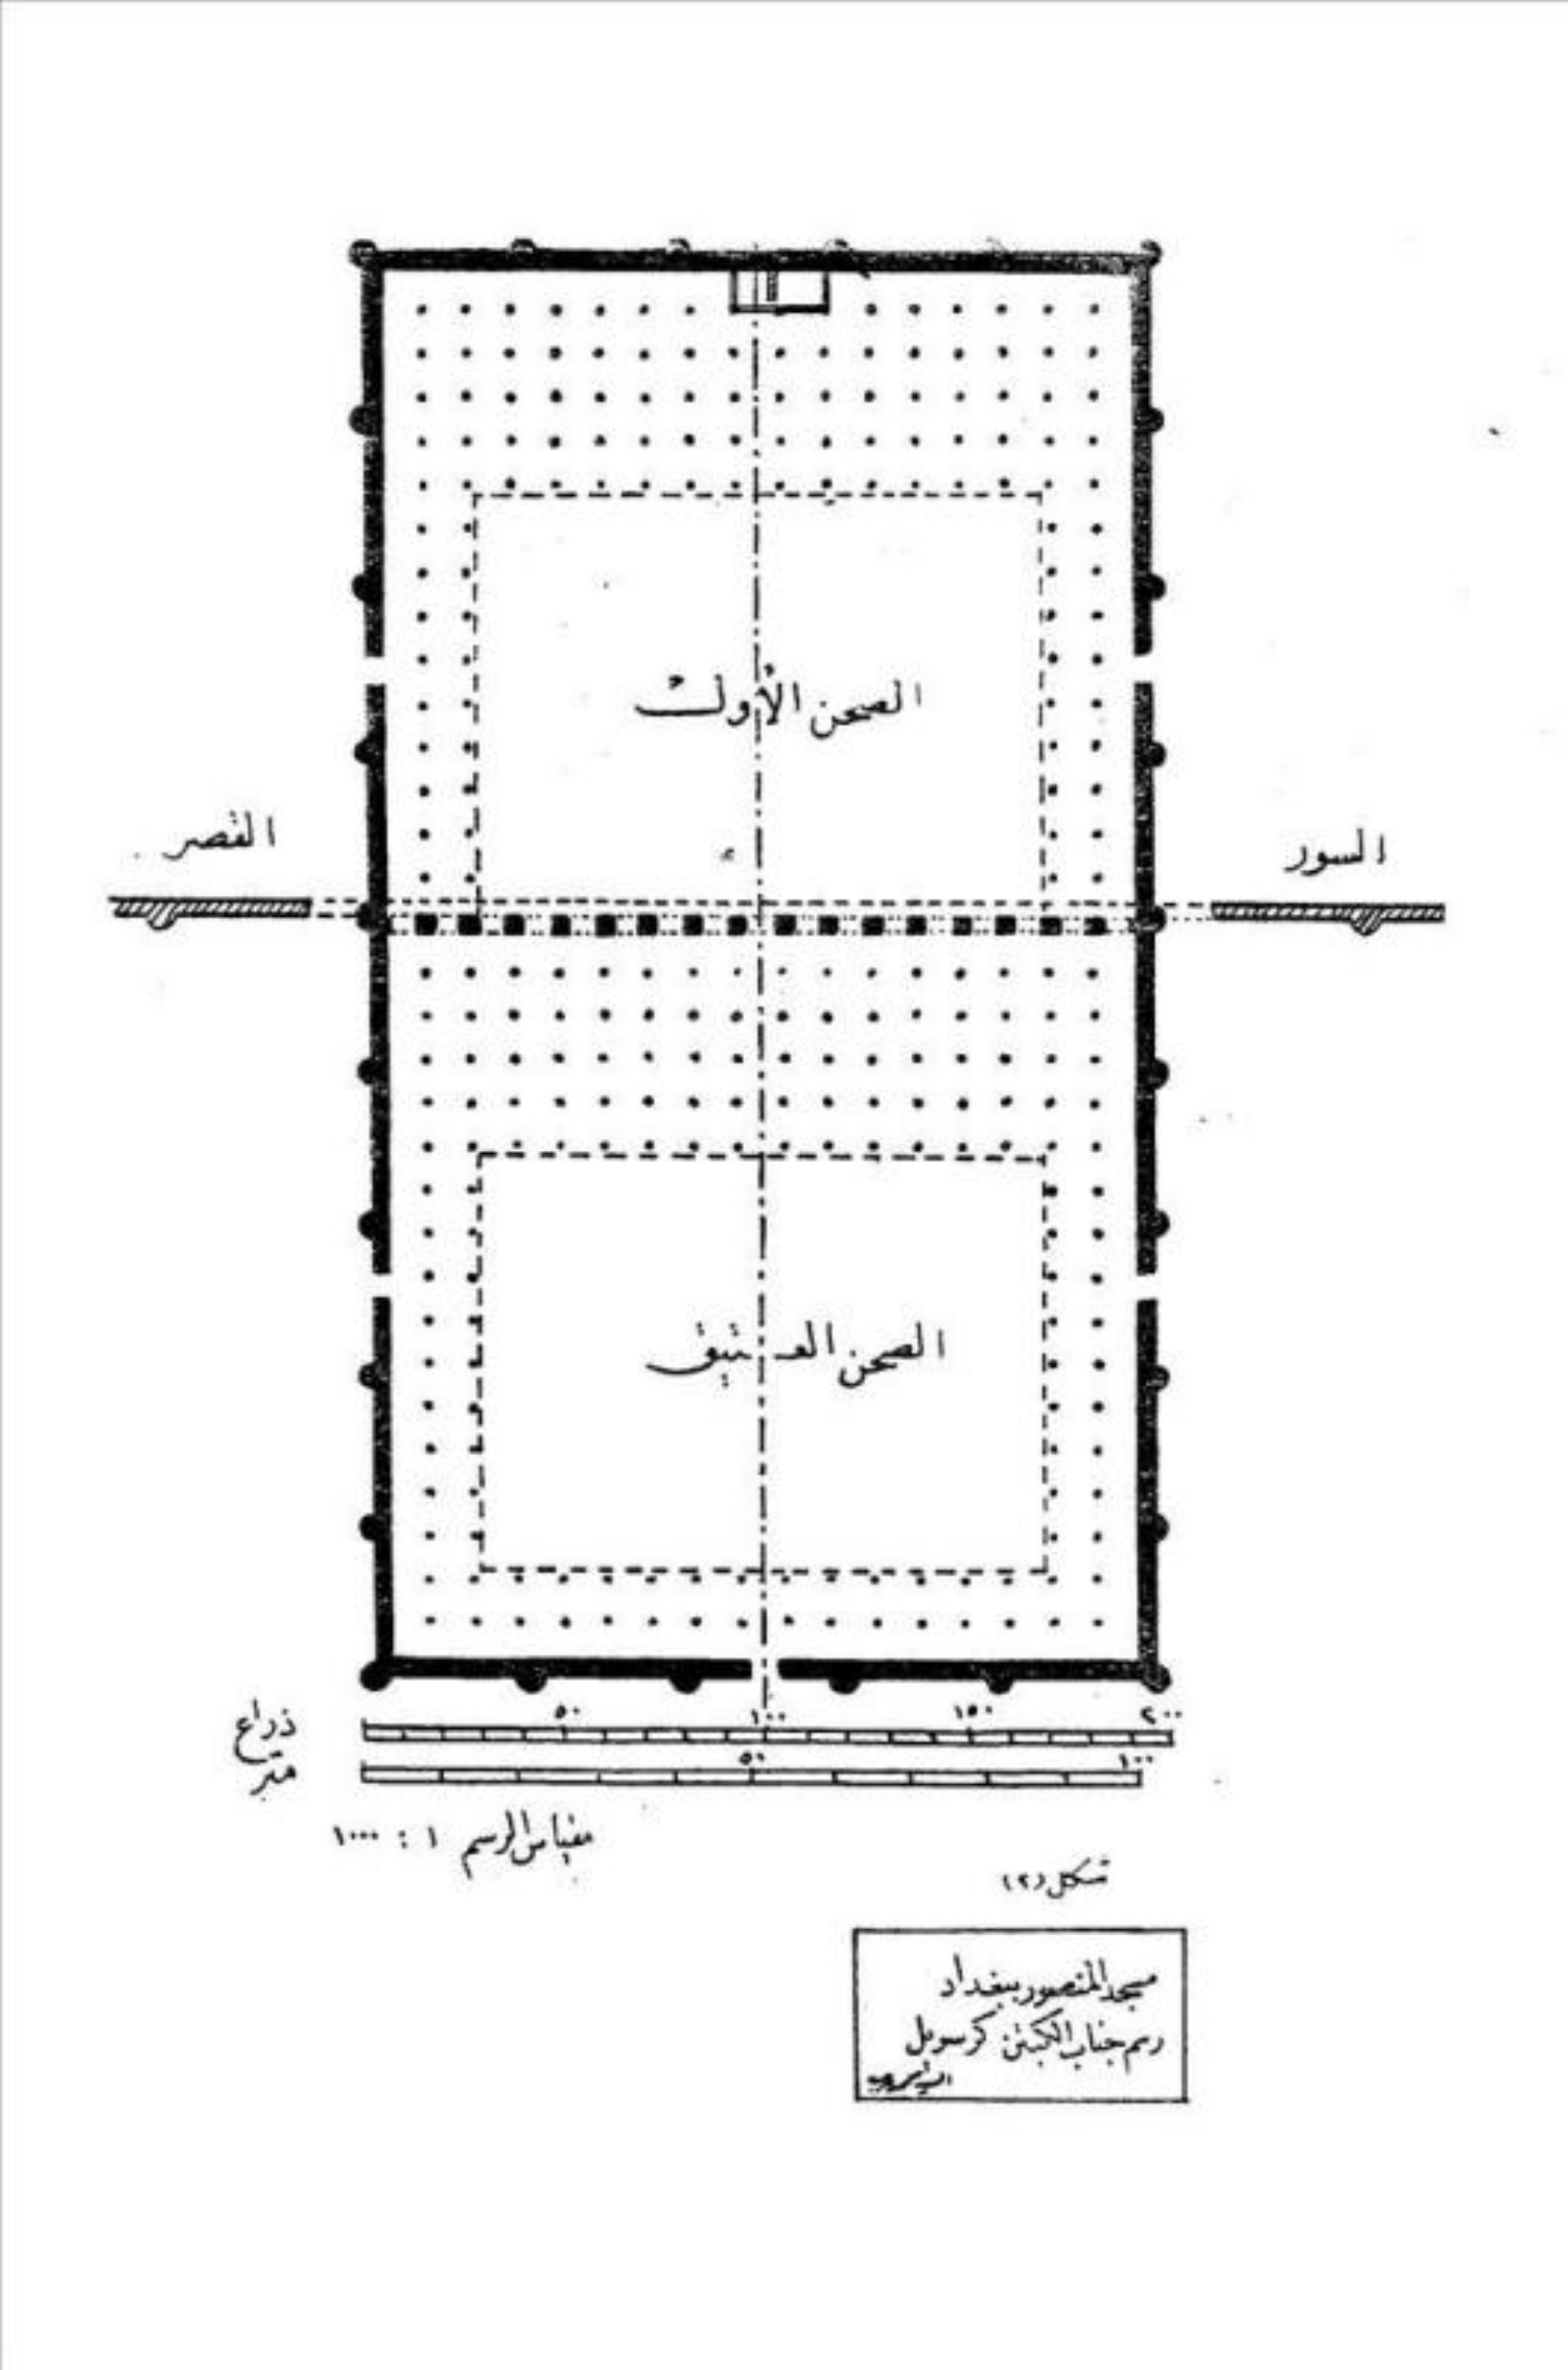 الصحن الأول
القصر
السور
الصحن العتيق
٥٠ ١٠٠ ١٥٠ ٢٠٠
ذراع
٥٠ ١٠٠
متر
مقياس الرسم ١ : ١٠٠٠
شكل (٢)
مسجد المنصور ببغداد
رسم جناب الكبتن كرسويل